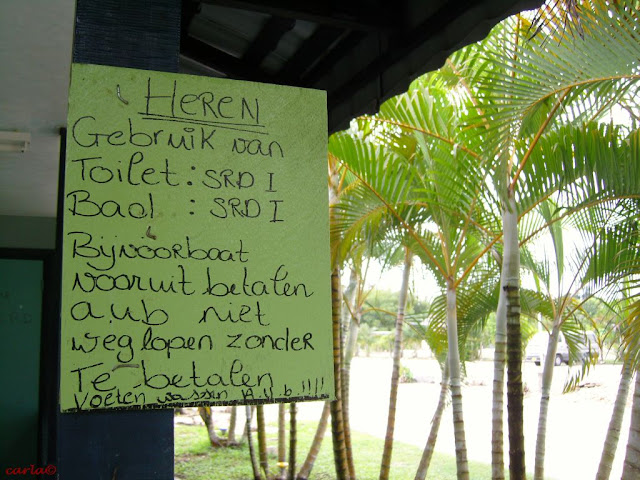 HEREN
Gebruik van
Toilet: SRD 1
Bad : SRD 1
Bijvoorbaat
vooruit betalen
a.u.b niet
weglopen zonder
Te betalen
Voeten wassen A.u.b.!!!!
carla©